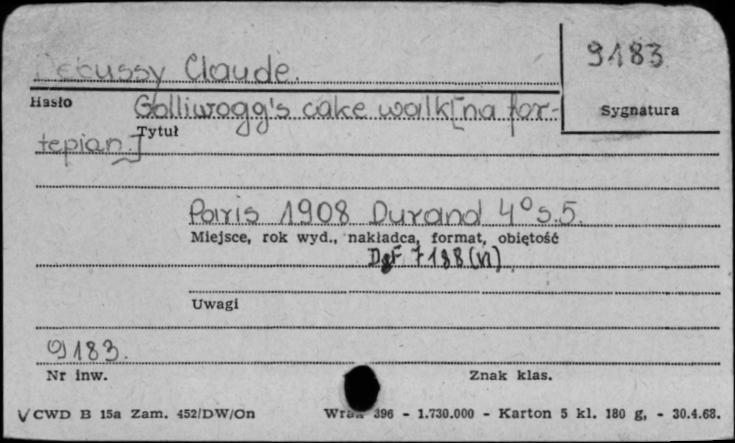 Debussy Claude.
9183
Hasło
Golliwogg's cake walk [na for-
Sygnatura
Tytuł
tepian.]
Paris 1908 Durand 4° s.5.
Miejsce, rok wyd., nakładca, format, objętość
7188 (VI)
Uwagi
9183.
Nr inw.
Znak klas.
CWD B 15a Zam. 452/DW/On
396 - 1.730.000 - Karton 5 kl. 180 g, - 30.4.68.